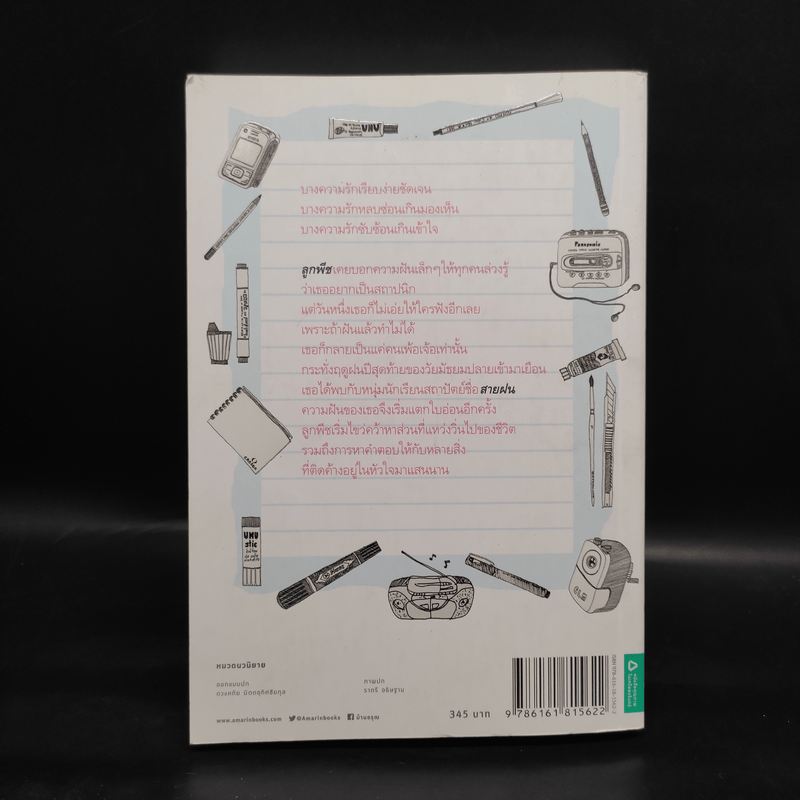 UHU
Pannsonic
บางความรักเรียบง่ายชัดเจน
บางความรักหลบซ่อนเกินมองเห็น
บางความรักซับซ้อนเกินเข้าใจ
ลูกพีชเคยบอกความฝันเล็กๆ ให้ทุกคนล่วงรู้
ว่าเธออยากเป็นสถาปนิก
แต่วันหนึ่งเธอก็ไม่เอ่ยให้ใครฟังอีกเลย
เพราะถ้าฝันแล้วทำไม่ได้
เธอก็กลายเป็นแค่คนเพ้อเจ้อเท่านั้น
กระทั่งฤดูฝนปีสุดท้ายของวัยมัธยมปลายเข้ามาเยือน
เธอได้พบกับหนุ่มนักเรียนสถาปัตย์ชื่อ สายฝน
ความฝันของเธอจึงเริ่มแตกใบอ่อนอีกครั้ง
ลูกพีชเริ่มไขว่คว้าหาส่วนที่แหว่งวิ่นไปของชีวิต
รวมถึงการหาคำตอบให้กับหลายสิ่ง
ที่ติดค้างอยู่ในหัวใจมาแสนนาน
UHU
stic
หมวดนวนิยาย
ออกแบบปก
ดวงหทัย มัตตกุกิตชัยกุล
ภาพปก
ราตรี อธิษฐาน
www.amarinbooks.com
@Amarinbooks
บ้านอรุณ
345 บาท
9 786161 815622